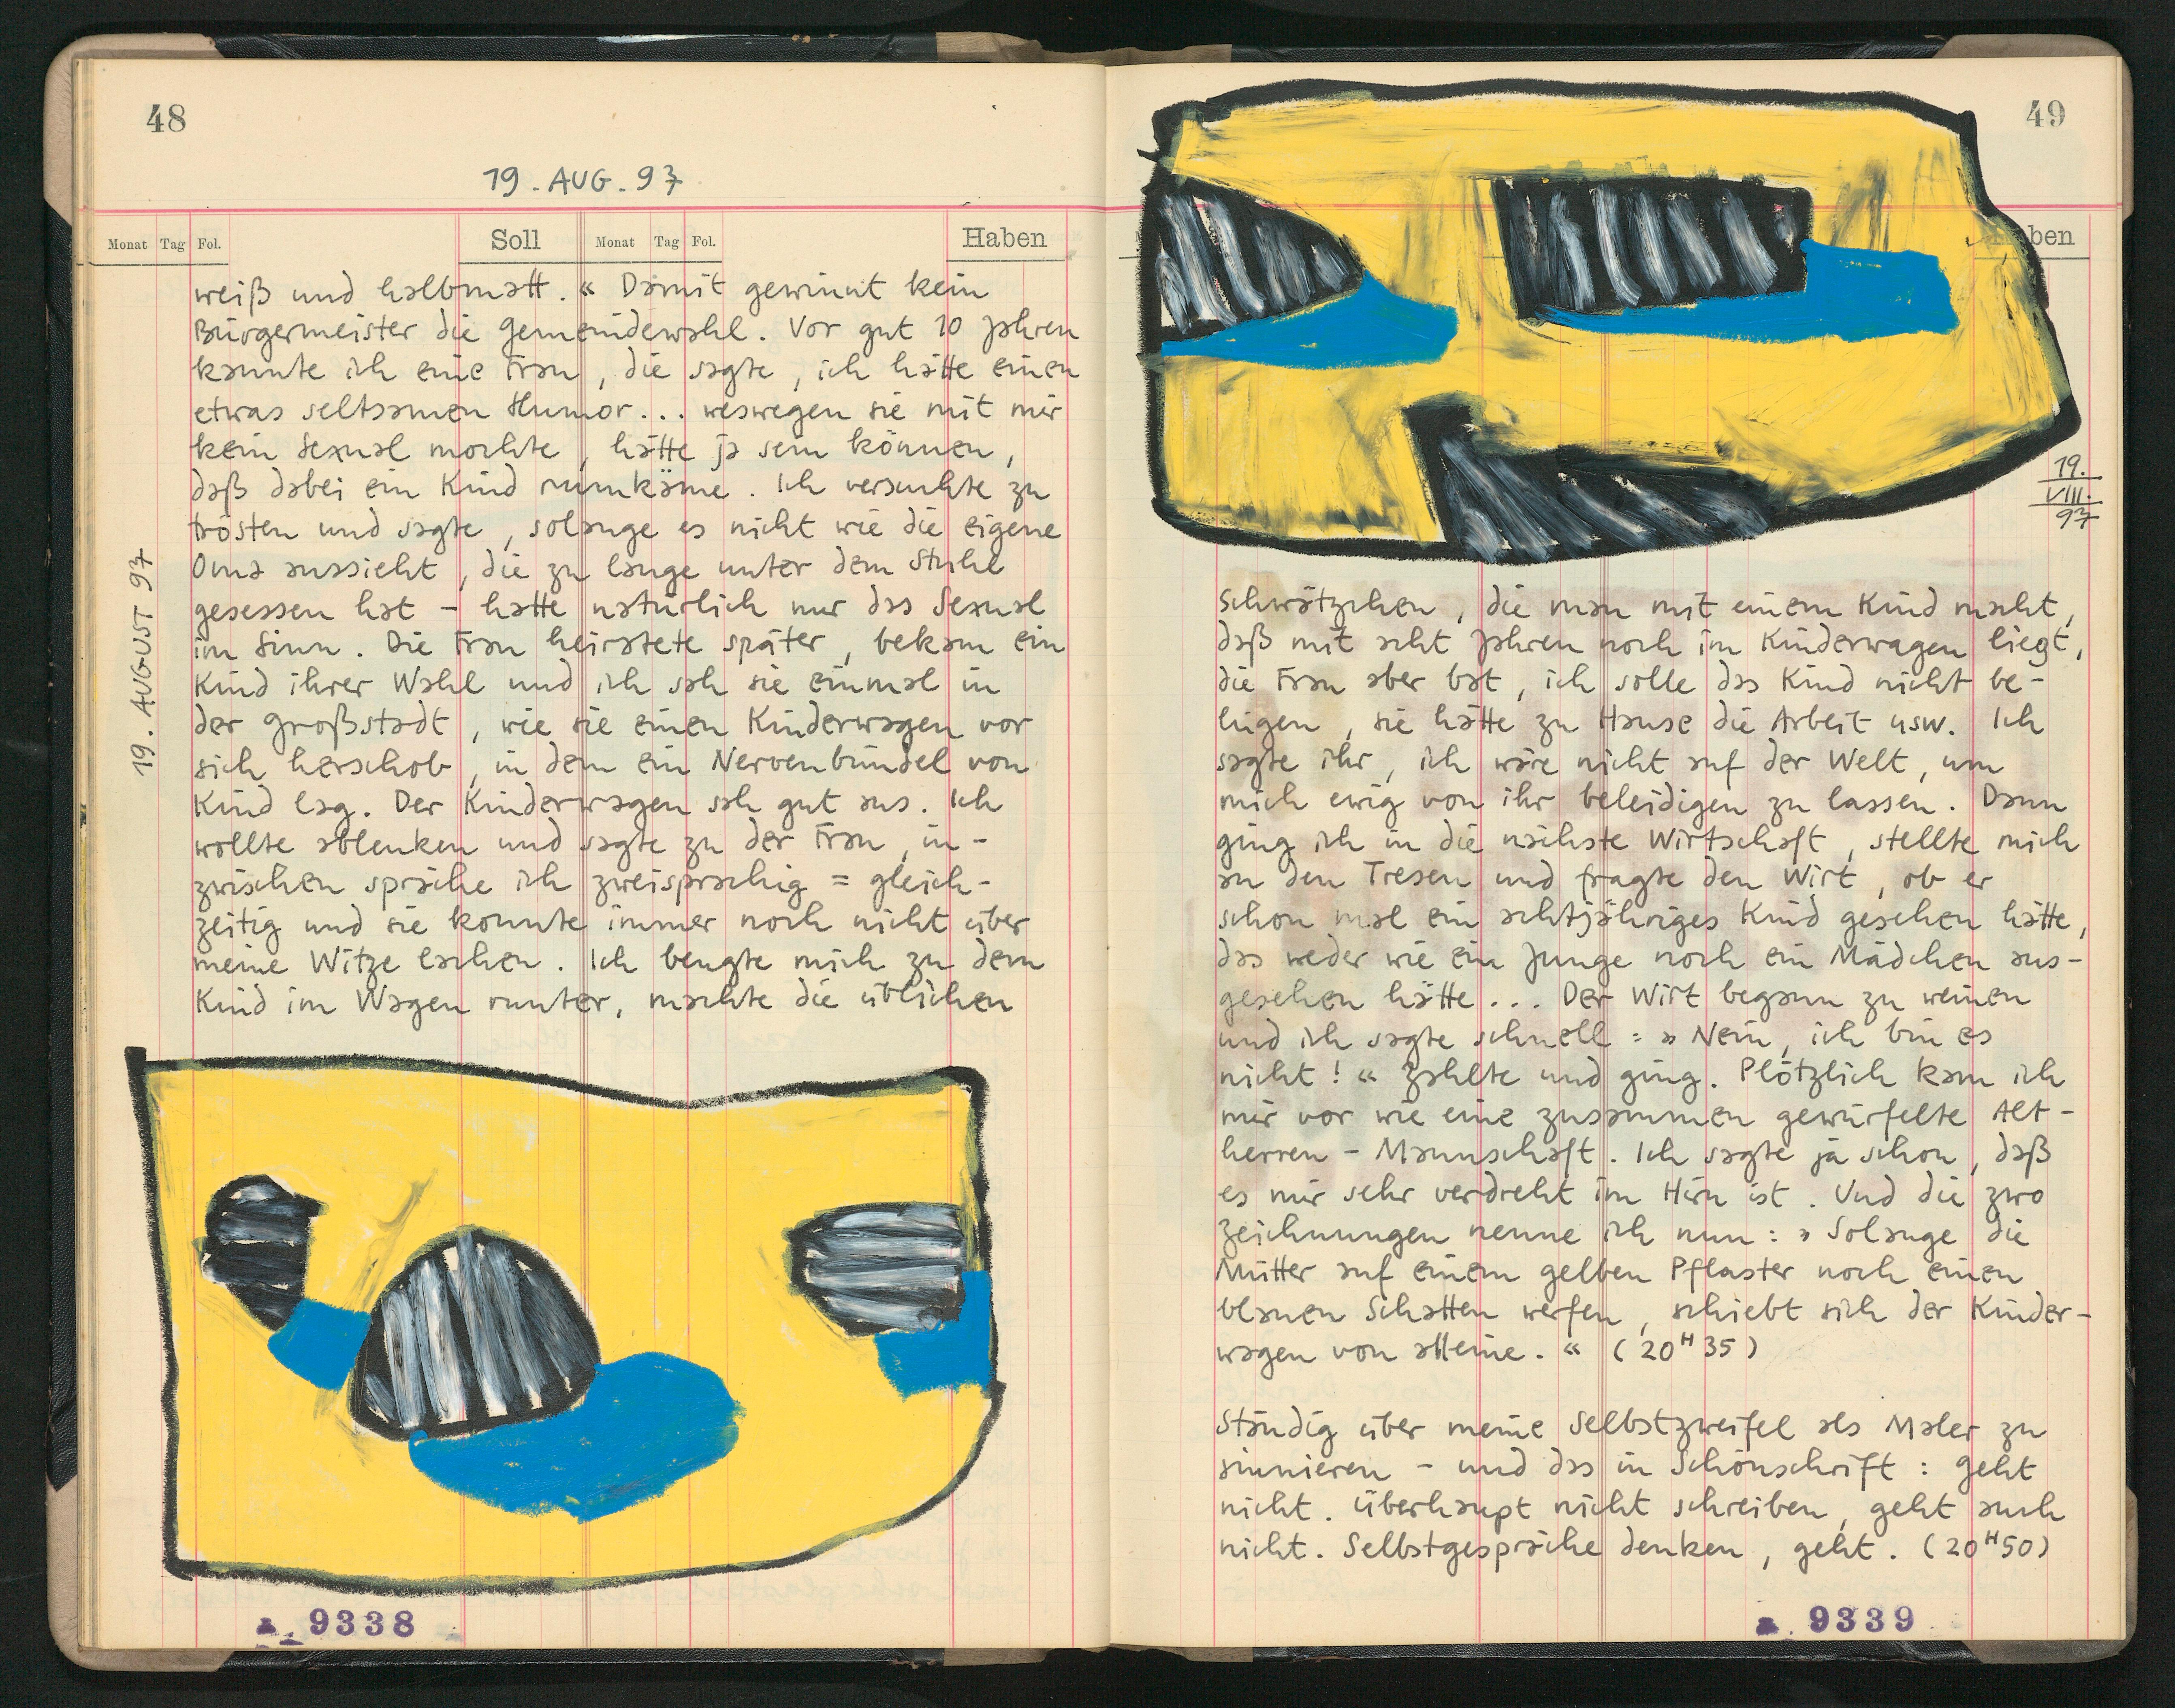 48
19. AUG. 97
Monat Tag Fol. Soll Monat Tag Fol. Haben
weiß und halbmatt.« Damit gewinnt kein
Bürgermeister die Gemeindewahl. Vor gut 10 Jahren
kannte ich eine Frau, die sagte, ich hätte einen
etwas seltsamen Humor... weswegen sie mit mir
kein Sexual mochte, hätte ja sein können,
daß dabei ein Kind rumkäme. Ich versuchte zu
trösten und sagte, solange es nicht wie die eigene
Oma aussieht, die zu lange unter dem Stuhl
gesessen hat – hatte natürlich nur das Sexual
im Sinn. Die Frau heiratete später, bekam ein
Kind ihrer Wahl und ich sah sie einmal in
der Großstadt, wie sie einen Kinderwagen vor
sich herschob, in dem ein Nervenbündel von
Kind lag. Der Kinderwagen sah gut aus. Ich
wollte ablenken und sagte zu der Frau, in-
zwischen spräche ich zweisprachig = gleich-
zeitig und sie konnte immer noch nicht über
meine Witze lachen. Ich beugte mich zu dem
Kind im Wagen runter, machte die üblichen
19. AUGUST 97
9338
49
Haben
19.
VIII.
97
Schwätzchen, die man mit einem Kind macht,
daß mit acht Jahren noch im Kinderwagen liegt,
die Frau aber bat, ich solle das Kind nicht be-
lügen, sie hätte zu Hause die Arbeit usw. Ich
sagte ihr, ich wäre nicht auf der Welt, um
mich ewig von ihr beleidigen zu lassen. Dann
ging ich in die nächste Wirtschaft, stellte mich
an den Tresen und fragte den Wirt, ob er
schon mal ein achtjähriges Kind gesehen hätte,
das weder wie ein Junge noch ein Mädchen aus-
gesehen hätte... Der Wirt begann zu weinen
und ich sagte schnell: »Nein, ich bin es
nicht!« Zahlte und ging. Plötzlich kam ich
mir vor wie eine zusammen gewürfelte Alt-
herren-Mannschaft. Ich sagte ja schon, daß
es mir sehr verdreht im Hirn ist. Und die zwo
Zeichnungen nenne ich nun: »Solange die
Mütter auf einem gelben Pflaster noch einen
blauen Schatten werfen, schiebt sich der Kinder-
wagen von alleine.« (20H35)
Ständig über meine Selbstzweifel als Maler zu
sinnieren – und das in Schönschrift: geht
nicht. Überhaupt nicht schreiben, geht auch
nicht. Selbstgespräche denken, geht. (20H50)
9339